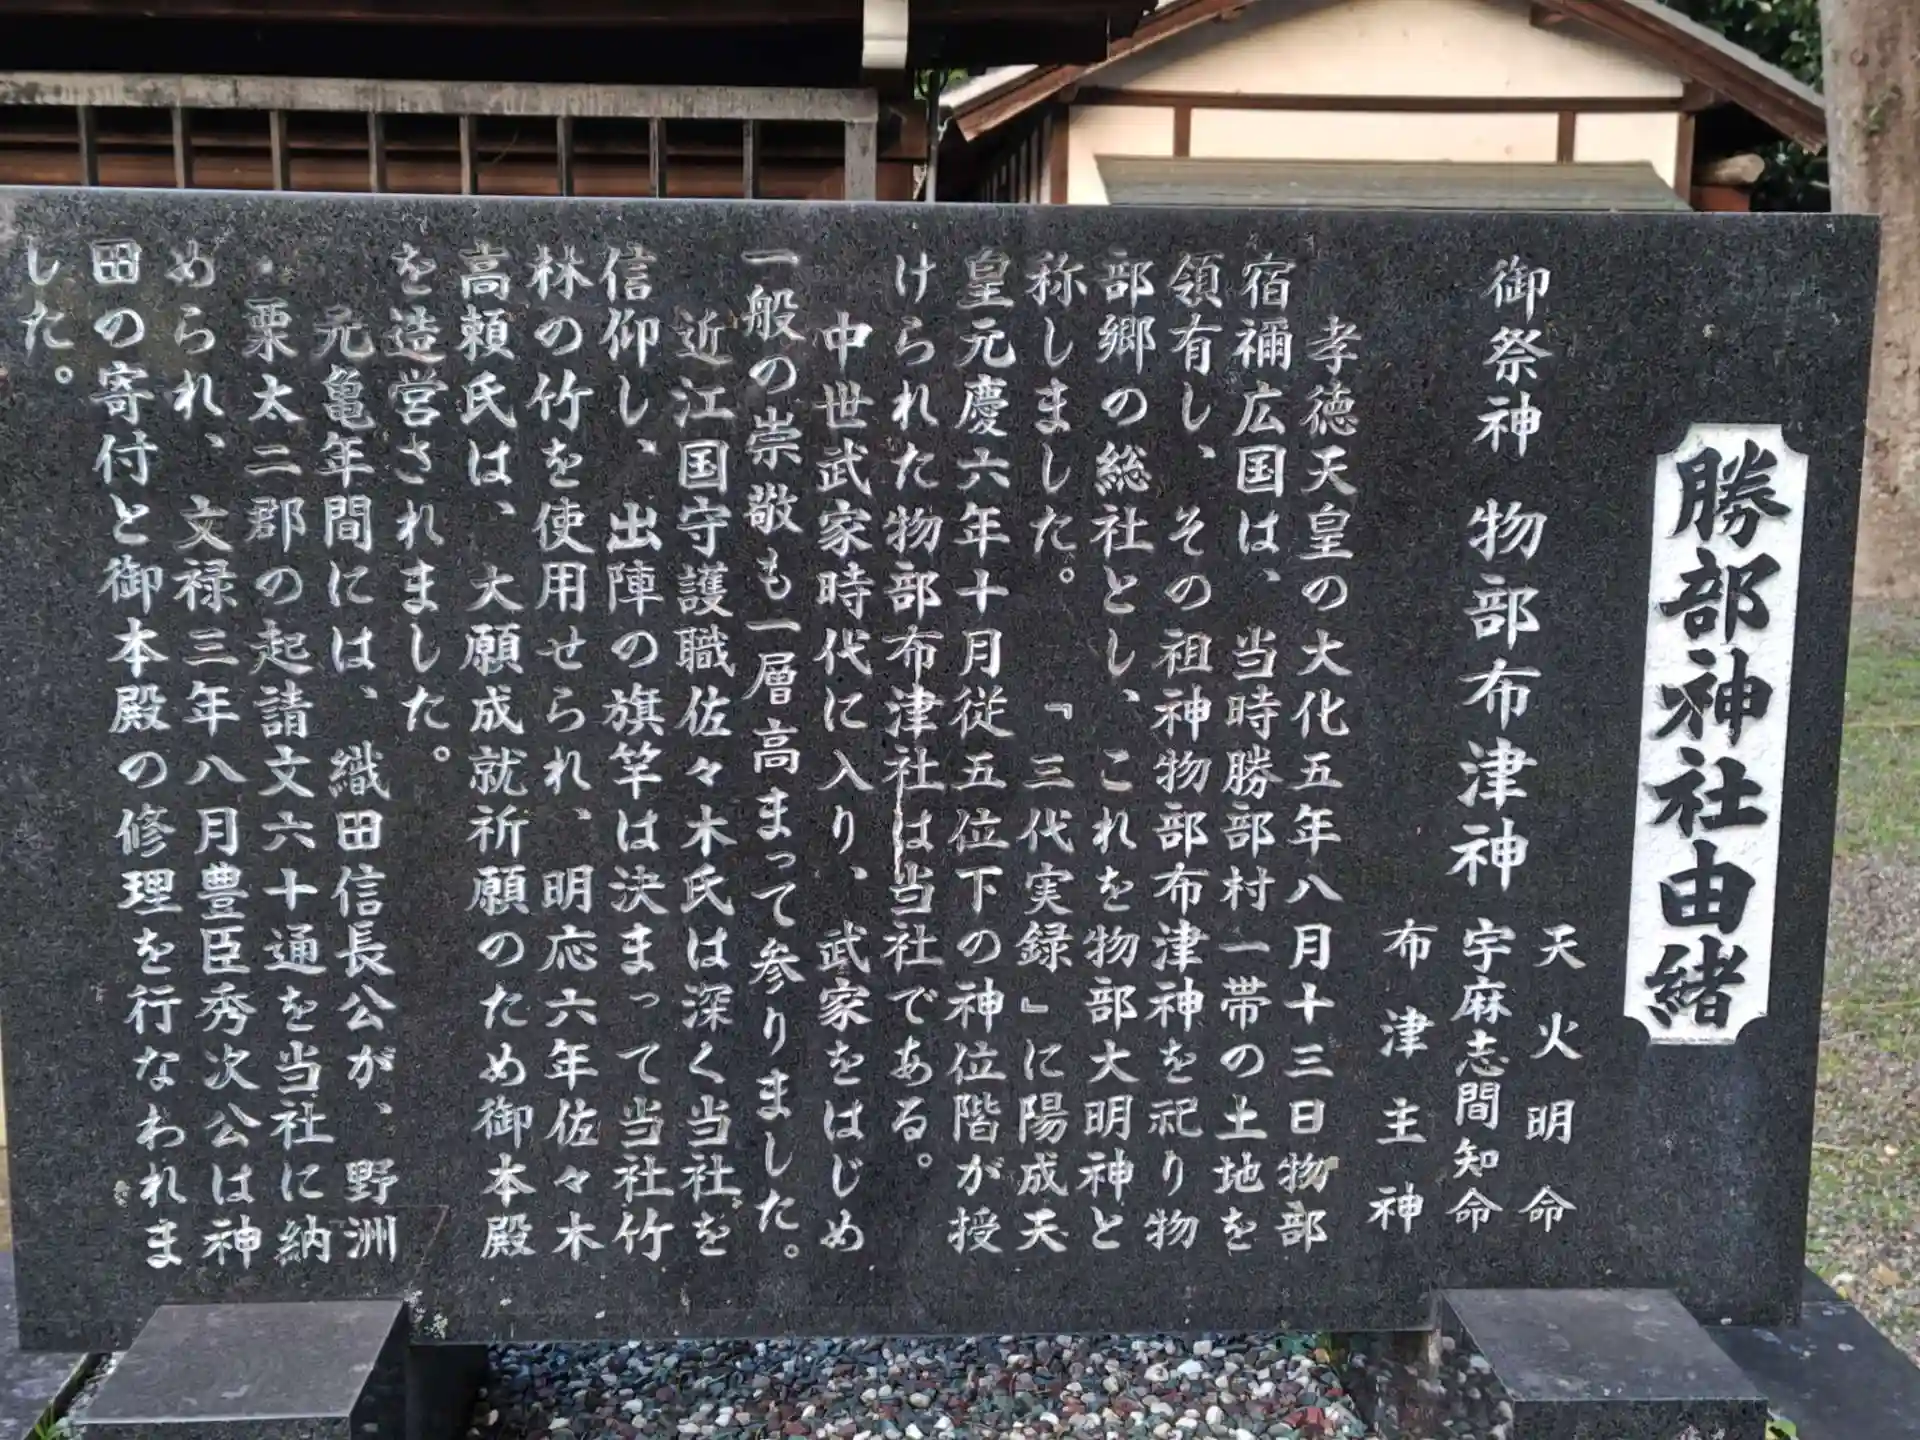 勝部神社由緒
御祭神 物部布津神
天火明命
宇麻志間知命
布津主神
孝徳天皇の大化五年八月十三日物部
宿禰広国は、当時勝部村一帯の土地を
領有し、その祖神物部布津神を祀り物
部郷の総社とし、これを物部大明神と
称しました。『三代実録』に陽成天
皇元慶六年十月従五位下の神位階が授
けられた物部布津社は当社である。
中世武家時代に入り、武家をはじめ
一般の崇敬も一層高まって参りました。
近江国守護職佐々木氏は深く当社を
信仰し、出陣の旗竿は決まって当社竹
林の竹を使用せられ、明応六年佐々木
高頼氏は、大願成就祈願のため御本殿
を造営されました。
元亀年間には、織田信長公が、野洲
・栗太二郡の起請文六十通を当社に納
められ、文禄三年八月豊臣秀次公は神
田の寄付と御本殿の修理を行なわれま
した。